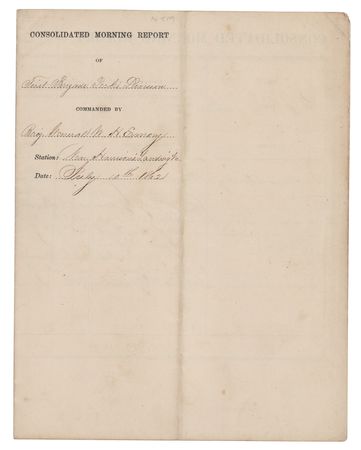 CONSOLIDATED MORNING REPORT
OF
First Brigade Division
COMMANDED BY
Brig General W H Emory
Station: Near Harrison's Landing Va
Date: July 10th 1862